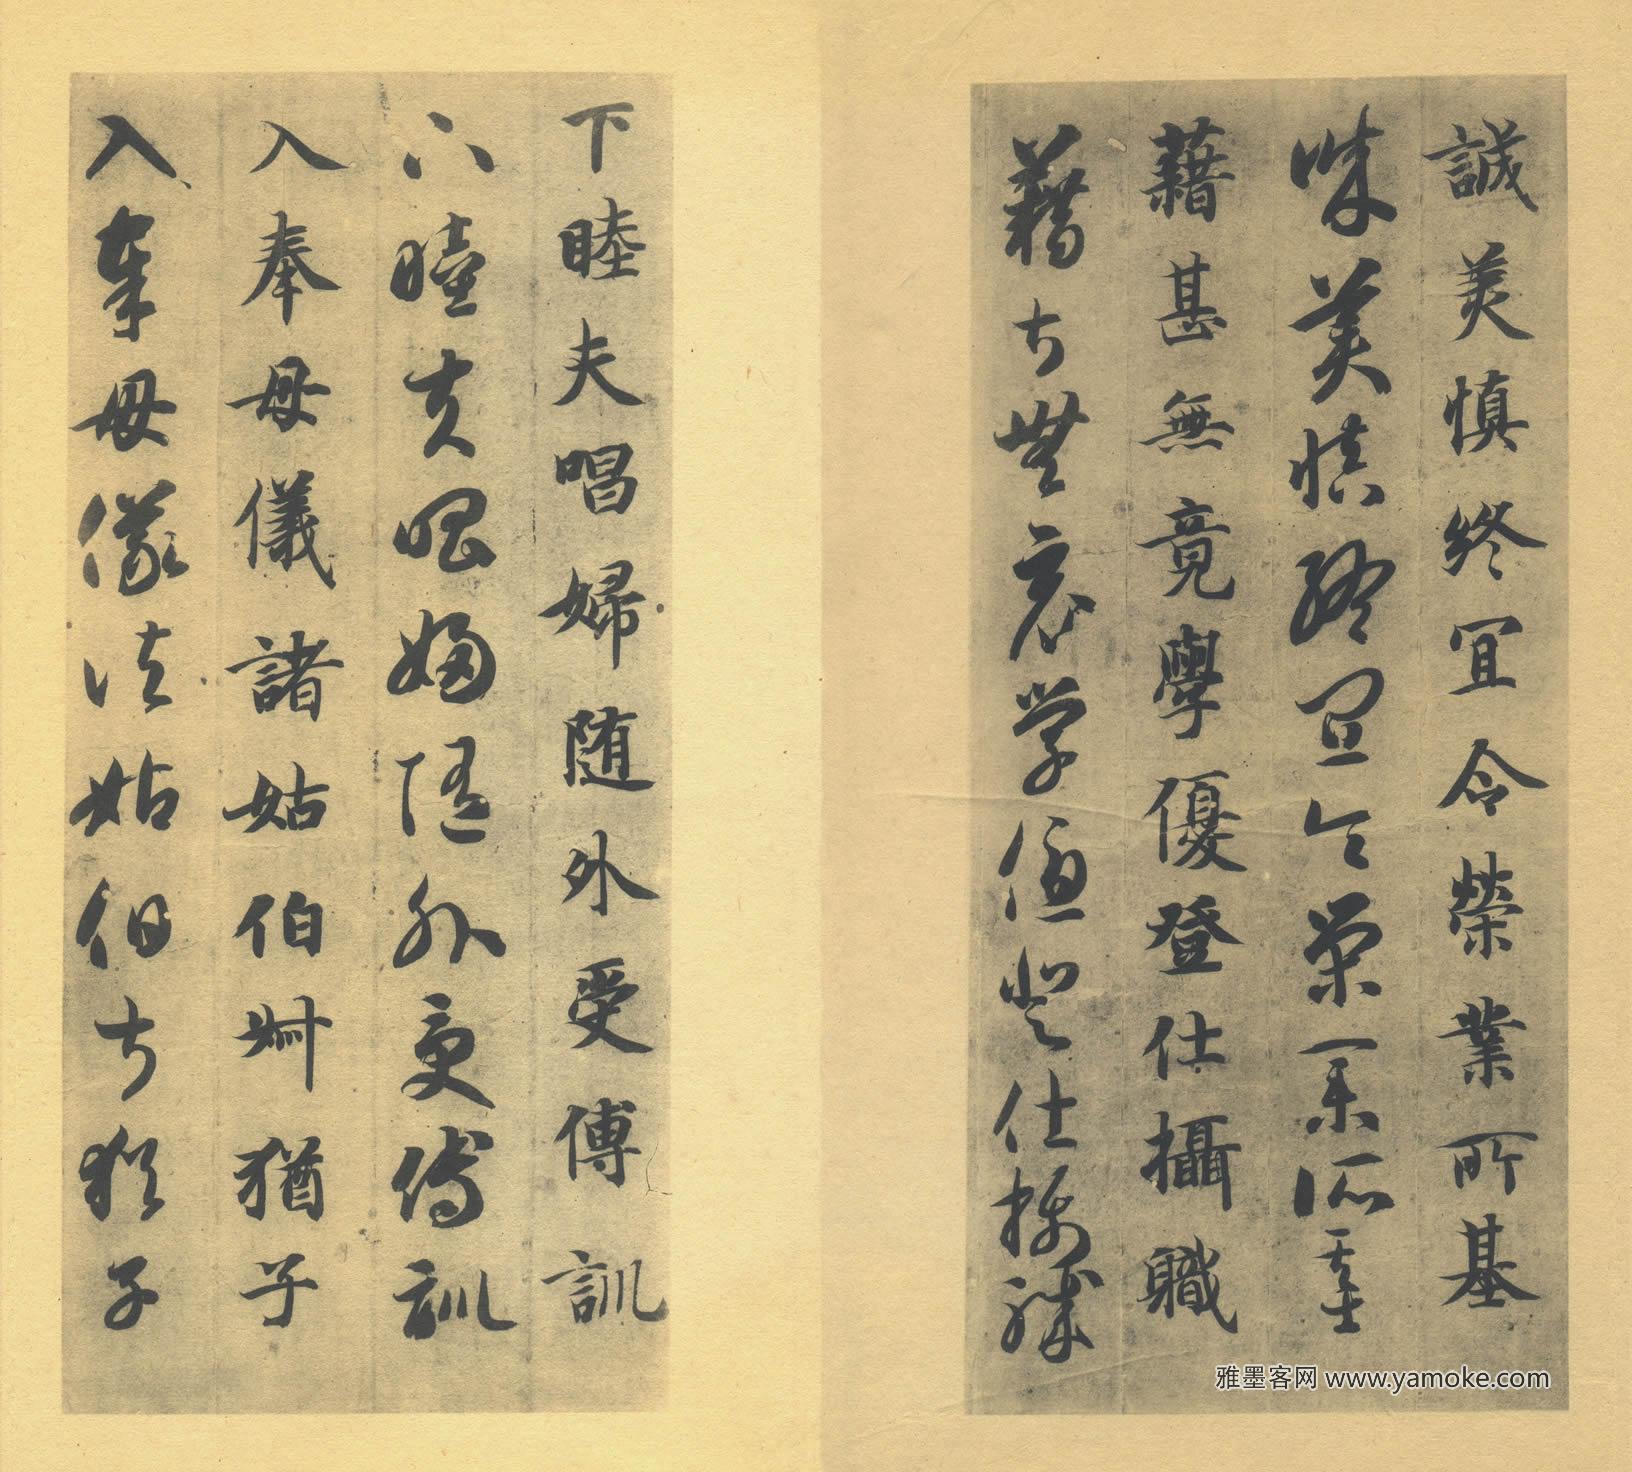 誠美慎終宜令榮業所基
誠美慎終宜令榮業所基
藉甚無竟學優登仕攝職
藉甚無竟學優登仕攝職
下睦夫唱婦随外受傅訓
下睦夫唱婦随外受傅訓
入奉母儀諸姑伯叔猶子
入奉母儀諸姑伯叔猶子
雅墨客网 www.yamoke.com